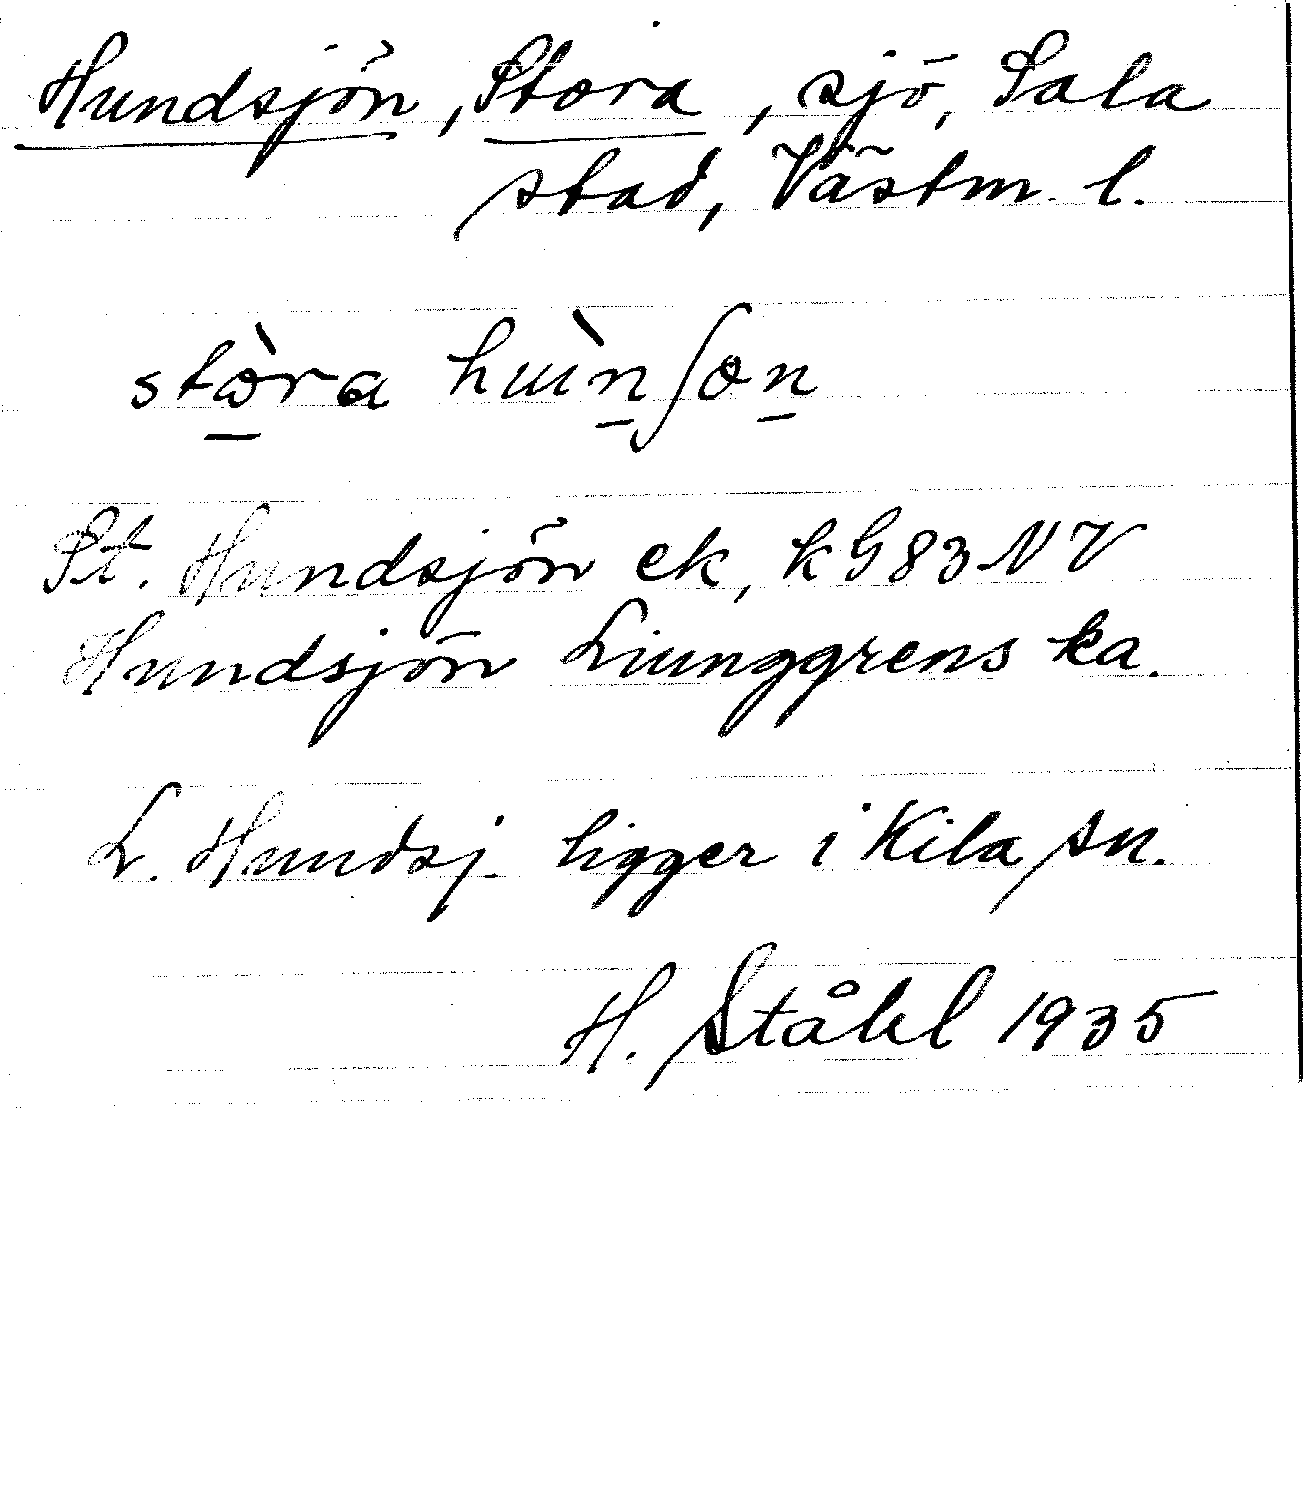 Hundsjön, Stora, sjö, Sala
stad, Västm. l.
stœ̀ra huɯ̀nʃœn
St. Hundsjön ek, kG83NV
Hundsjön Liunggrens ka.
L. Hundsj. ligger i Kila sn.
H. Ståhl 1935